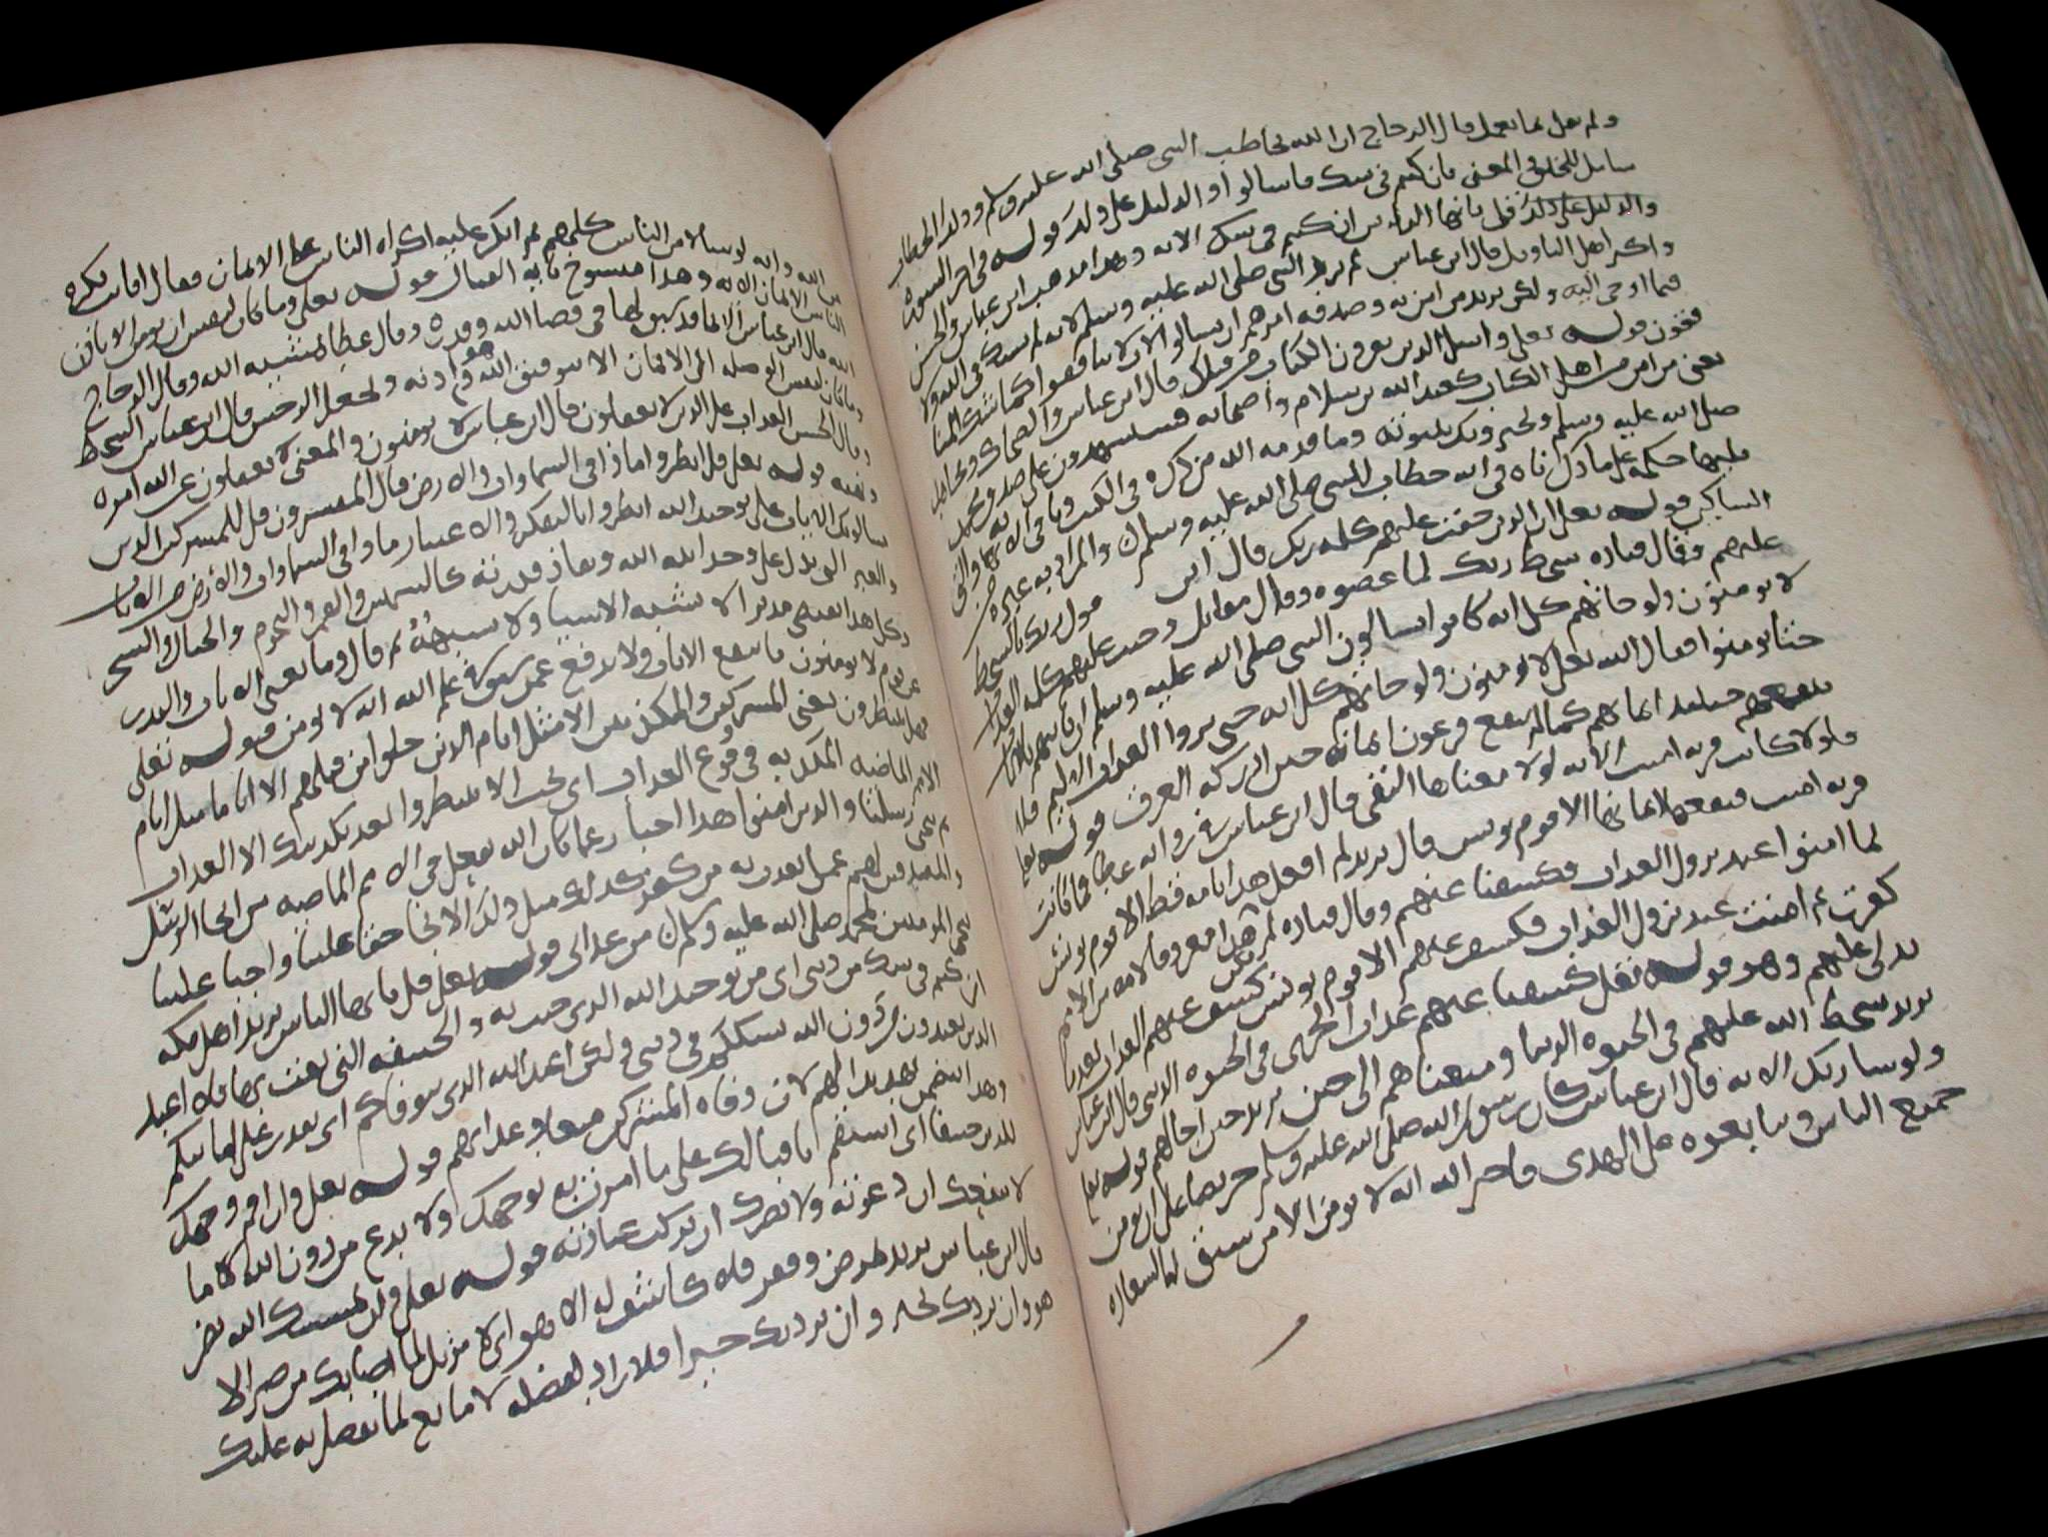 ولم يعمل بما يعمل قال الزجاج ان الله يخاطب النبي صلى الله عليه وسلم وذلك الخطاب
شامل للخلق والمعنى فان كنتم في شك فاسالوا والدليل على ذلك قوله في اخر السورة
والدليل على ذلك قل يا ايها الناس ان كنتم في شك الاية وهذا مذهب ابن عباس والحسن
واكثر اهل التاويل قال ابن عباس لم يرد النبي صلى الله عليه وسلم لانه لم يشك في الله ولا
فيما اوحى اليه ولكن يريد من امن به وصدقه امرهم ان يسالوا لان لا ينافقوا كما شك المنا
فقون قوله تعلى واسل الذين يقرون الكتاب من قبلك قال ابن عباس والضحاك ومجاهد
يعني من امن من اهل الكتاب كعبد الله بن سلام واصحابه فسيشهدون على صدق محمد
صلى الله عليه وسلم ويخبرونك بنبوته وما قدمه الله من ذكره في الكتب وباقي الاية والتي
تليها حكمه على ما ذكرناه في انه خطاب للنبي صلى الله عليه وسلم والمراد به غيره من
الشاكين قوله تعلى ان الذين حقت عليهم كلمة ربك قال ابن عباس قول ربك بالسخط
عليهم وقال قتاده سخط ربك لما عصوه وقال مقاتل وجبت عليهم كلمة العذاب
لا يومنون ولو جاتهم كل اية كانوا يسالون النبي صلى الله عليه وسلم ان ياتيهم بالايات
حتى يومنوا فقال الله تعلى لا يومنون ولو جاتهم كل اية حتى يروا العذاب الاليم فلا
ينفعهم حينئذ ايمانهم كما لم ينفع فرعون ايمانه حين ادركه الغرق قوله تعلى
فلولا كانت قرية امنت الاية لولا معناها النفي قال ابن عباس في رواية عطا فما كانت
قرية امنت فنفعها ايمانها الا قوم يونس قال يريد لم افعل هذا بامة قط الا قوم يونس
لما امنوا عند نزول العذاب فكشفنا عنهم وقال قتاده لم يكن هذا معروفا لامة من الامم
كفرت ثم امنت عند نزول العذاب فكشف عنهم الا قوم يونس كشف عنهم العذاب بعدما
تدلى عليهم وهو قوله تعلى كشفنا عنهم عذاب الخزي في الحيوة الدنيا قال ابن عباس
يريد سخط الله عليهم في الحيوة الدنيا ومتعناهم الى حين يريد حين اجالهم قوله تعلى
ولو شا ربك الاية قال ابن عباس كان رسول الله صلى الله عليه وسلم حريصا على ان يومن
جميع الناس ويتابعوه على الهدى فاخبر الله انه لا يومن الا من سبق له السعاده
من الله وانه لو شا لامن الناس كلهم ثم انكر عليه اكراه الناس على الايمان فقال افانت تكره
الناس الاية وهذا منسوخ باية القتال قوله تعلى وما كان لنفس ان تومن الا باذن
الله قال ابن عباس الا بما قد سبق لها في قضا الله وقدره وقال عطا بمشية الله وقال الزجاج
وما كان لنفس الوصلة الى الايمان الا بتوفيق الله وهو اذنه ويجعل الرجس قال ابن عباس السخط
وقال الحسن العذاب على الذين لا يعقلون قال ابن عباس لا يومنون والمعنى لا يعقلون عن الله امره
ونهيه قوله تعلى قل انظروا ماذا في السماوات والارض قال المفسرون قل للمشركين الذين
سالونك الايات على توحيد الله انظروا بالتفكر والاعتبار ماذا في السماوات والارض من الايات
والعبر التي تدل على وحدانية الله ونفاذ قدرته كالشمس والقمر والنجوم والجبال والشجر
وكل هذا يقتضي مدبرا لا يشبه الاشيا ولا تشبهه ثم قال وما تغني الايات والنذر
عن قوم لا يومنون ما تنفع الايات ولا تدفع عمن سبق في علم الله انه لا يومن قوله تعلى
فهل ينتظرون يعني المشركين والمكذبين الا مثل ايام الذين خلوا من قبلهم الا اياما مثل ايام
الامم الماضيه المكذبه في وقوع العذاب اي يجب الا ينتظروا بعد تكذيبك الا العذاب
ثم ننجي رسلنا والذين امنوا هذا اخبار عما كان الله يفعل في الامم الماضيه من انجا الرسل
والمصدقين لهم عما يعذب به من كفر كذلك مثل ذلك الانجا حقا علينا واجبا علينا
ننجي المومنين بمحمد صلى الله عليه وسلم من عذابي قوله تعلى قل يا ايها الناس يريد اهل مكه
ان كنتم في شك من ديني اي من توحيد الله الذي جيت به والحنيفيه التي بعثت بها فلا اعبد
الذين تعبدون من دون الله بشككم في ديني ولكن اعبد الله الذي يتوفاكم اي يقدر على اماتتكم
وهذا يتضمن تهديدا لهم لان وفاة المشركين ميعاد عذابهم قوله تعلى وان اقم وجهك
للدين حنيفا اي استقم باقبالك على ما امرت به بوجهك ولا تدع من دون الله ما
لا ينفعك ان دعوته ولا يضرك ان تركت عبادته قوله تعلى وان يمسسك الله بضر
قال ابن عباس يريد بمرض وفقر فلا كاشف له الا هو اي لا مزيل لما اصابك من ضر الا
هو وان يردك بخير وان يرد بك خيرا فلا راد لفضله لا مانع لما تفضل به عليك